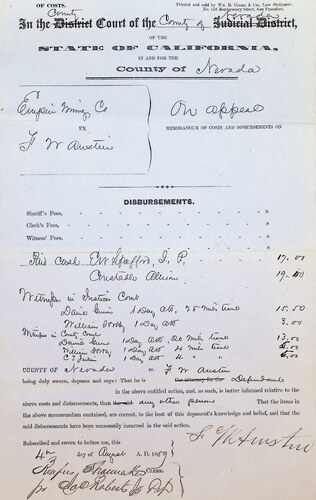 OF COSTS.
Printed and sold by Wm. B. Cooke & Co., Law Stationers,
No. Montgomery Street, San Francisco.
County County of Nevada
In the District Court of the Judicial District,
OF THE
STATE OF CALIFORNIA,
IN AND FOR THE
County of Nevada
Empire Mining Co
VS.
F W Austin
On appeal
MEMORANDUM OF COSTS AND DISBURSEMENTS ON
DISBURSEMENTS.
Sheriff's Fees,
Clerk's Fees,
Witness' Fees,
Paid Cash J. P. 17.00
Constable
Witnesses in Justices Court
1 Day att, 25 mile travel 15.50
William 1 Day att 3.00
Witnesses in County Court
1 Day att 20 mile travel 13.00
William 1 Day att 4 mile travel
1 Day att 4 " "
COUNTY OF Nevada F W Austin
being duly sworn, deposes and says: That he is the attorney for the Defendant
in the above entitled action, and, as such, is better informed relative to
the above costs and disbursements, than the said any other person That the items in
the above memorandum contained, are correct, to the best of this deponent's knowledge and belief, and that the said
disbursements have been necessarily incurred in the said action.
Subscribed and sworn to before me, this
4th day of August A. D. 1859
F W Austin
Rufus Shoemaker CLERK